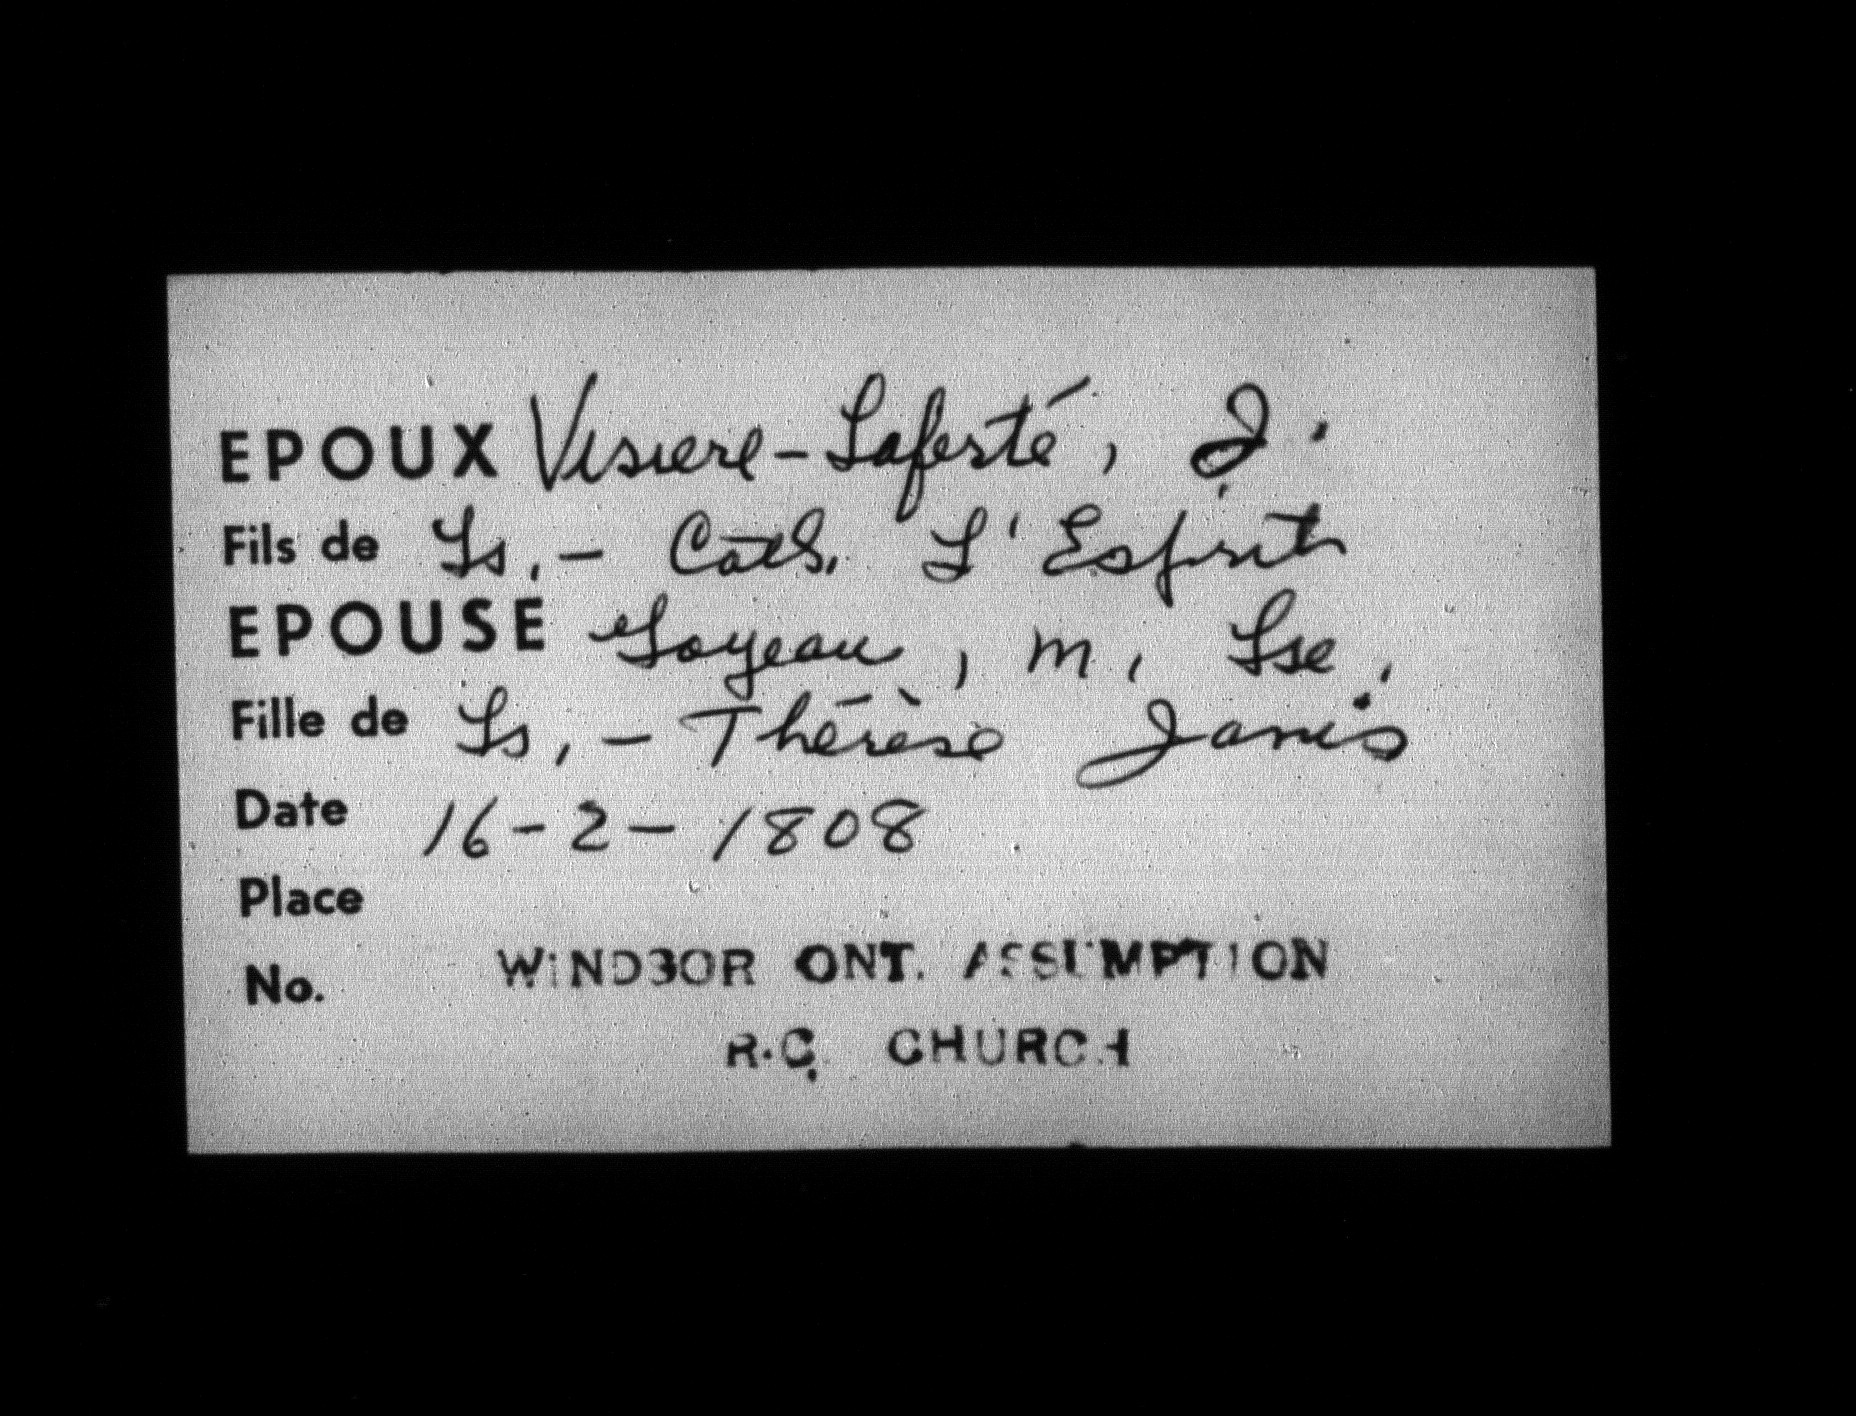 EPOUX Visiere-Laferté, J.
Fils de Ls,- Cath. L'Esprit
EPOUSE Goyeau, M. Lse,
Fille de Ls,- Thérèse Janis
Date 16-2-1808
Place
No. WINDSOR ONT. ASSUMPTION
R.C. CHURCH